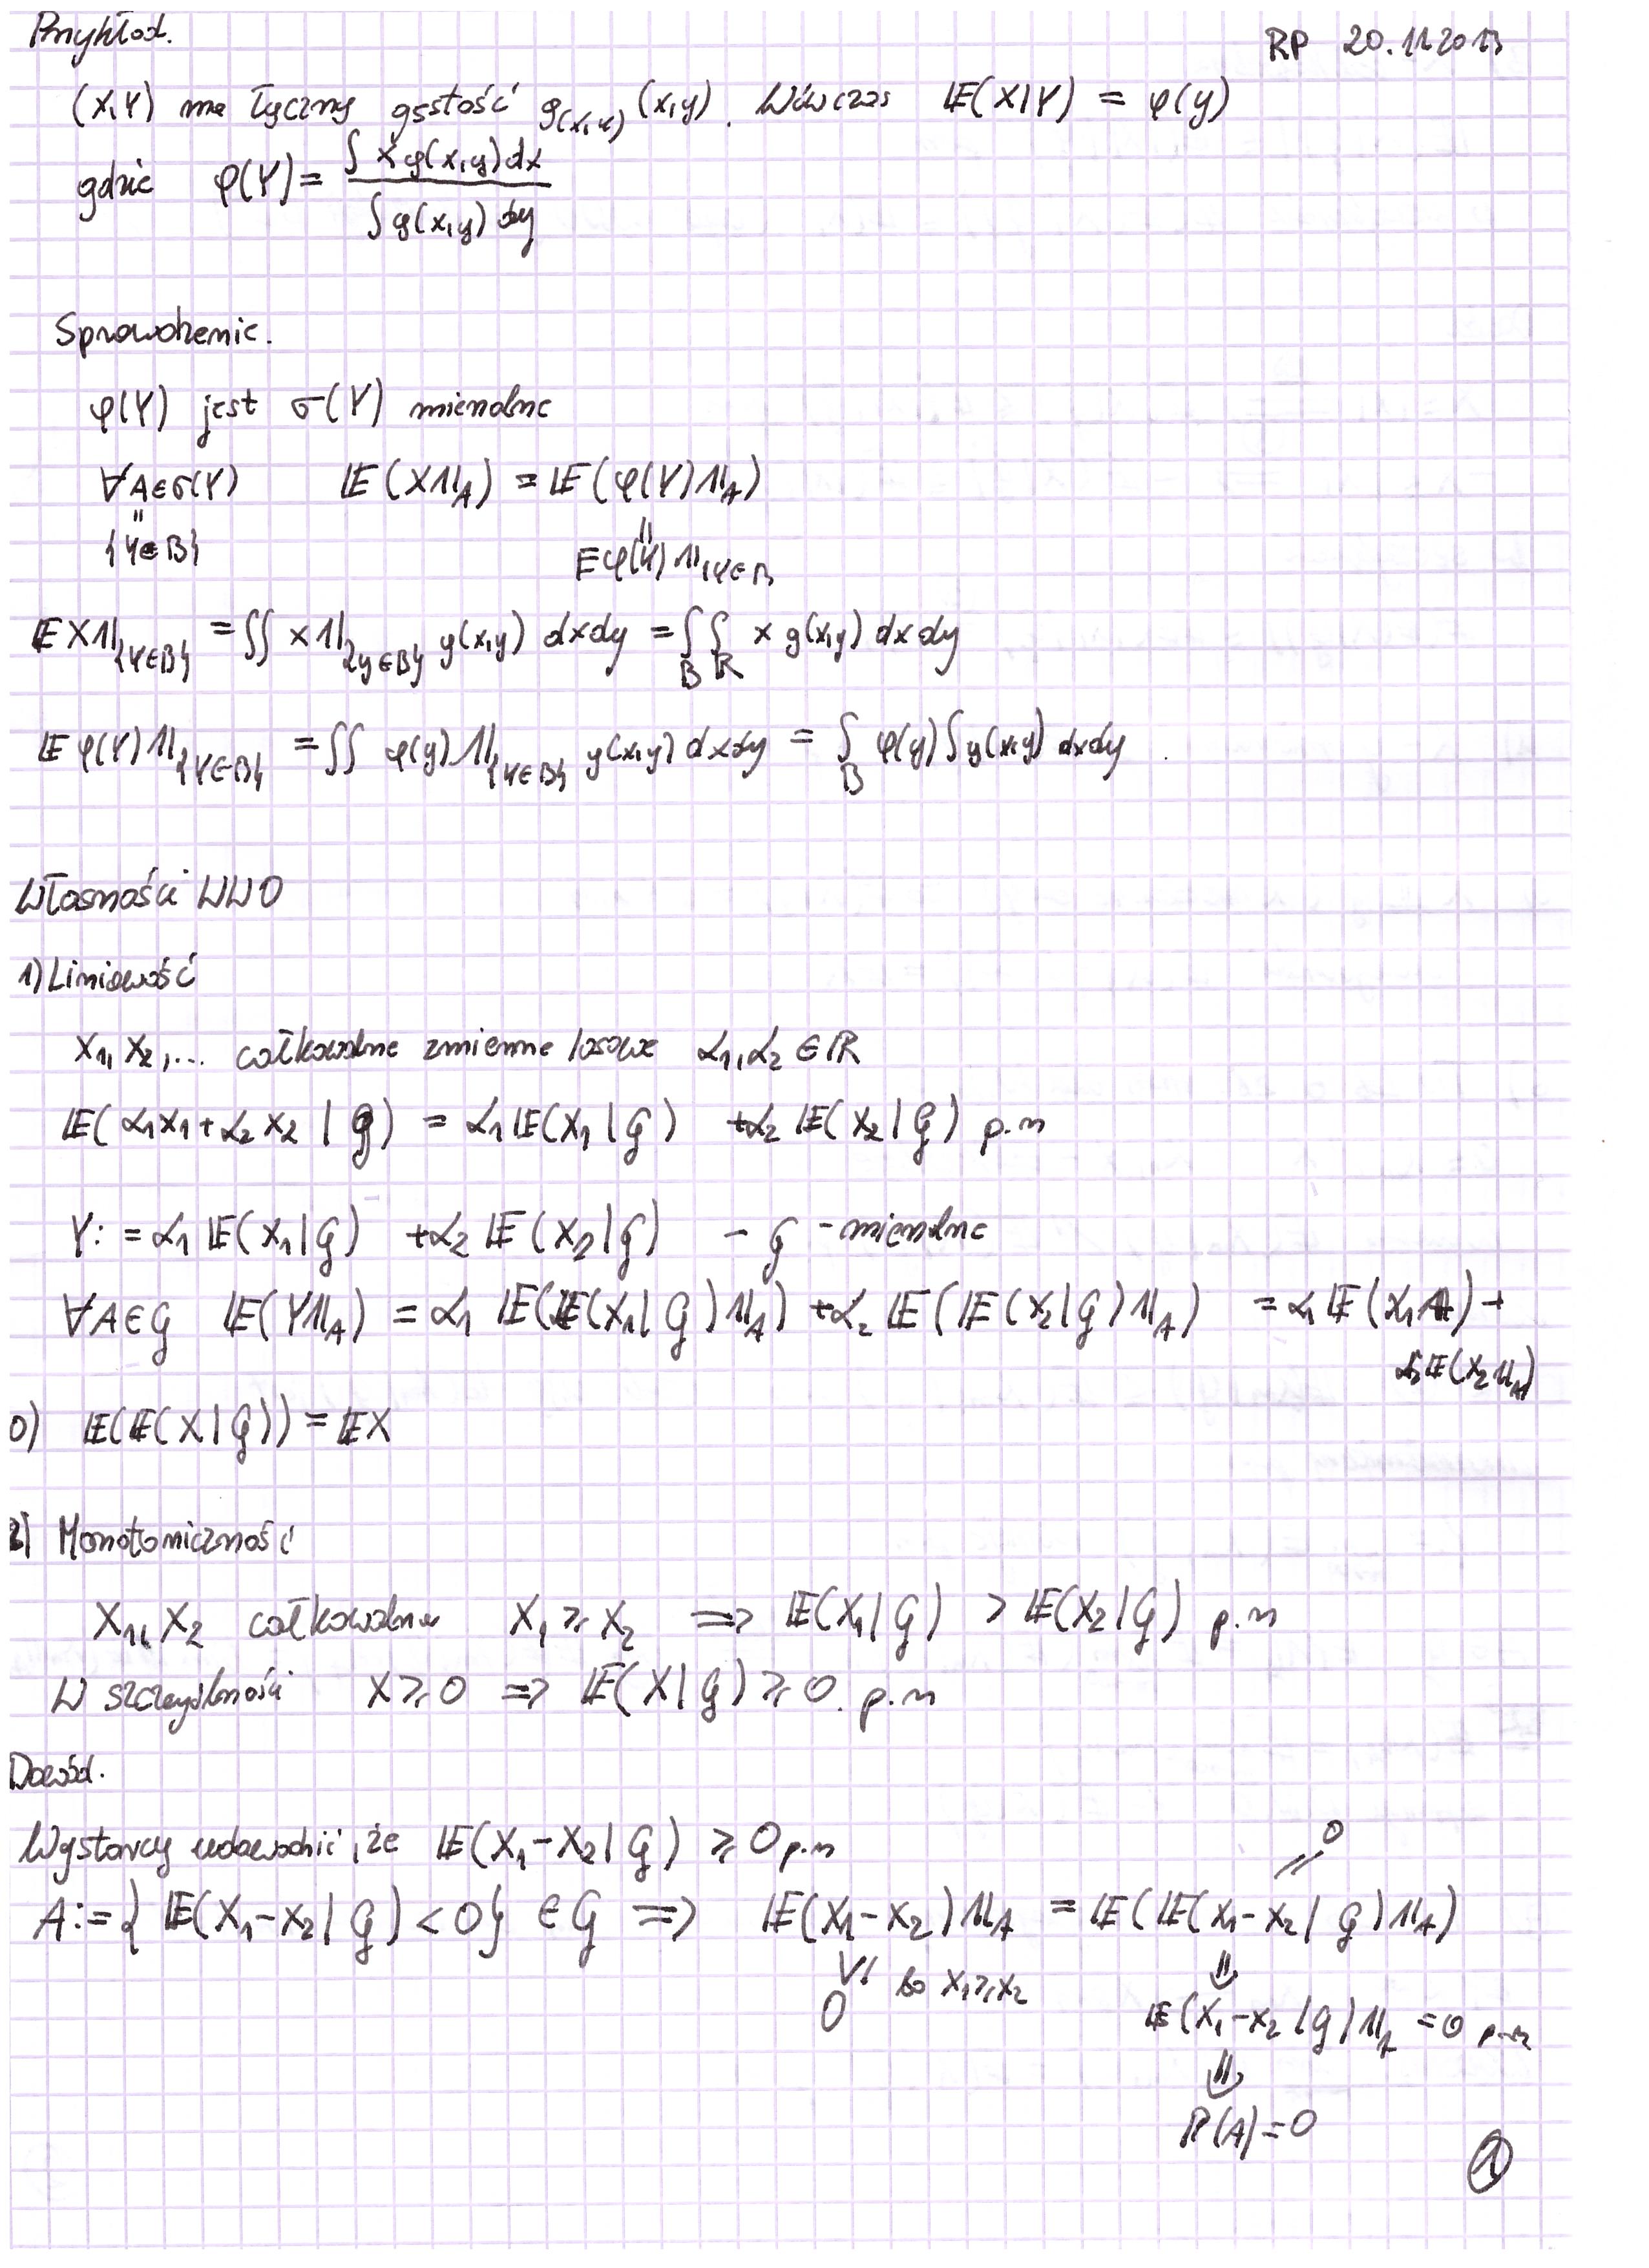 Przykład.
RP 20.11.2013
(X,Y) ma łączny gęstość g_(X,Y) (x,y). Wówczas 𝔼(X|Y) = φ(y)
gdzie φ(Y) = ∫ x g(x,y) dx / ∫ g(x,y) dy
Sprawdzenie.
φ(Y) jest σ(Y) mierzalne
∀A∈σ(Y) 𝔼(X𝟙_A) = 𝔼(φ(Y)𝟙_A)
= =
{Y∈B} Eφ(Y)𝟙_{Y∈B
𝔼X𝟙_{Y∈B} = ∫∫ x𝟙_{y∈B} g(x,y) dxdy = ∫_B ∫_ℝ x g(x,y) dxdy
𝔼φ(Y)𝟙_{Y∈B} = ∫∫ φ(y)𝟙_{Y∈B} g(x,y) dxdy = ∫_B φ(y) ∫ g(x,y) dxdy.
Własności WWO
1) Liniowość
X₁, X₂,... całkowalne zmienne losowe α₁,α₂ ∈ ℝ
𝔼(α₁X₁+α₂X₂ | G) = α₁𝔼(X₁|G) +α₂ 𝔼(X₂|G) p.n
Y: = α₁ 𝔼(X₁|G) +α₂ 𝔼(X₂|G) - G - mierzalne
∀A∈G 𝔼(Y𝟙_A) = α₁ 𝔼(𝔼(X₁|G)𝟙_A) +α₂ 𝔼(𝔼(X₂|G)𝟙_A) = α₁𝔼(X₁𝟙_A) +
α₂𝔼(X₂𝟙_A)
0) 𝔼(𝔼(X|G)) = 𝔼X
2) Monotoniczność
X₁, X₂ całkowalne X₁ ≥ X₂ ⟹ 𝔼(X₁|G) > 𝔼(X₂|G) p.n
W szczególności X ≥ 0 ⟹ 𝔼(X|G) ≥ 0. p.n
Dowód.
Wystarczy udowodnić, że 𝔼(X₁-X₂|G) ≥ 0 p.n
= 0
A := { 𝔼(X₁-X₂|G) < 0 } ∈ G ⟹ 𝔼(X₁-X₂)𝟙_A = 𝔼(𝔼(X₁-X₂|G)𝟙_A)
∨ı bo X₁≥X₂ ⇓
0 𝔼(X₁-X₂|G)𝟙_A = 0 p.n
⇓
ℙ(A) = 0
1